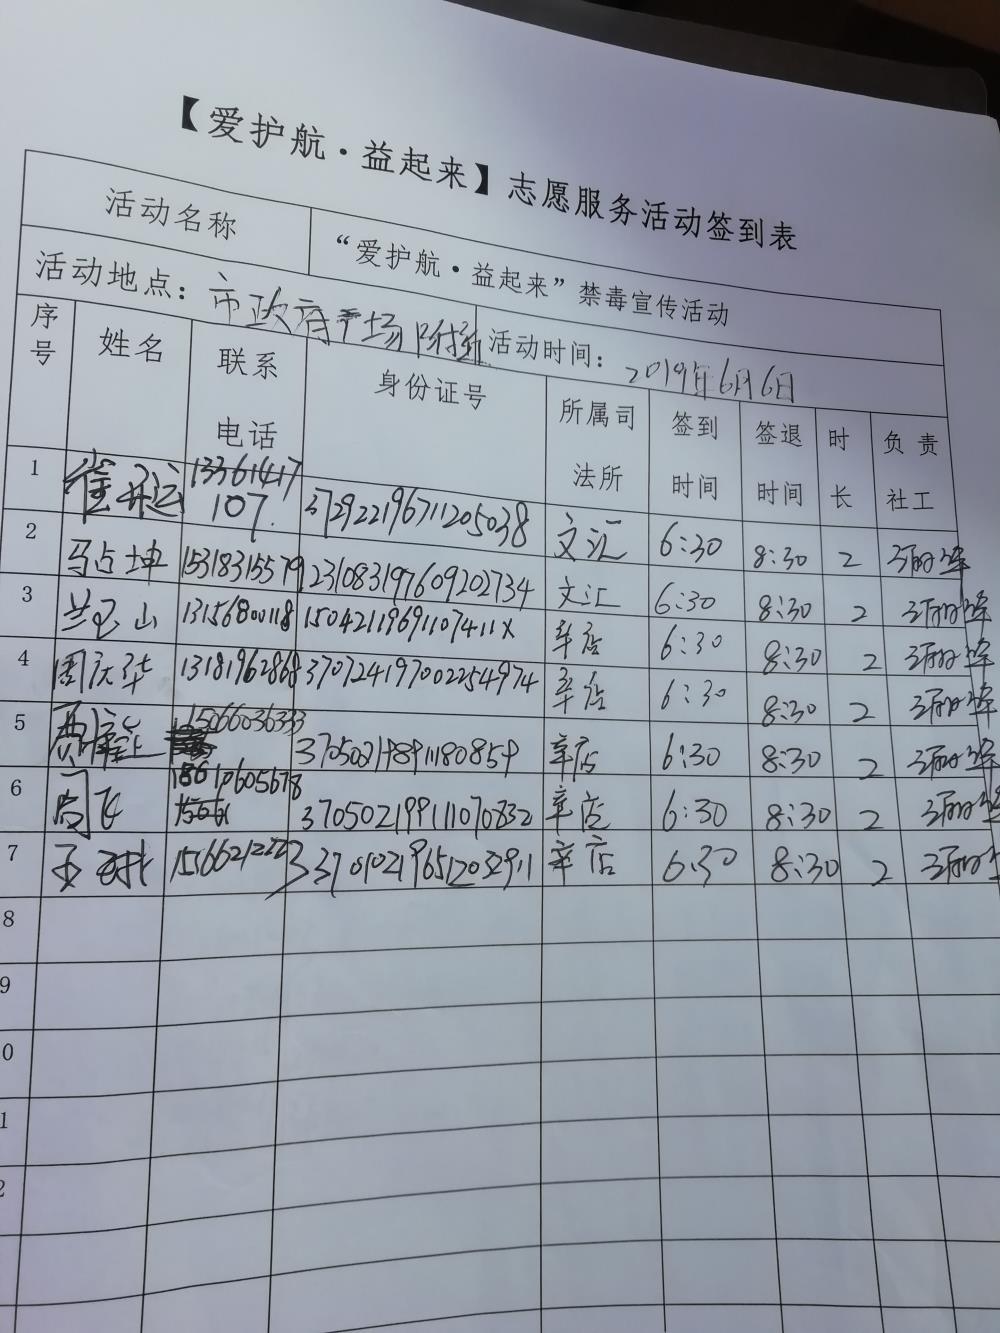 【爱护航·益起来】志愿服务活动签到表
活动名称 “爱护航·益起来”禁毒宣传活动
活动地点：市政府广场附近 活动时间：2019年6月6日
序号 姓名 联系电话 身份证号 所属司法所 签到时间 签退时间 时长 负责社工
1 崔 运 13361417107 372922196711205038 文汇 6:30 8:30 2
2 马占坤 15318315579 231083197609202734 文汇 6:30 8:30 2
3 兰 山 13156800118 15042119691107411X 辛店 6:30 8:30 2
4 周庆华 13181962868 370724197002254974 辛店 6:30 8:30 2
5 15066036333 370502198911180859 辛店 6:30 8:30 2
6 周飞 18610605678 370502199111070832 辛店 6:30 8:30 2
7 王 370102196512032911 辛店 6:30 8:30 2
8
9
0
1
2